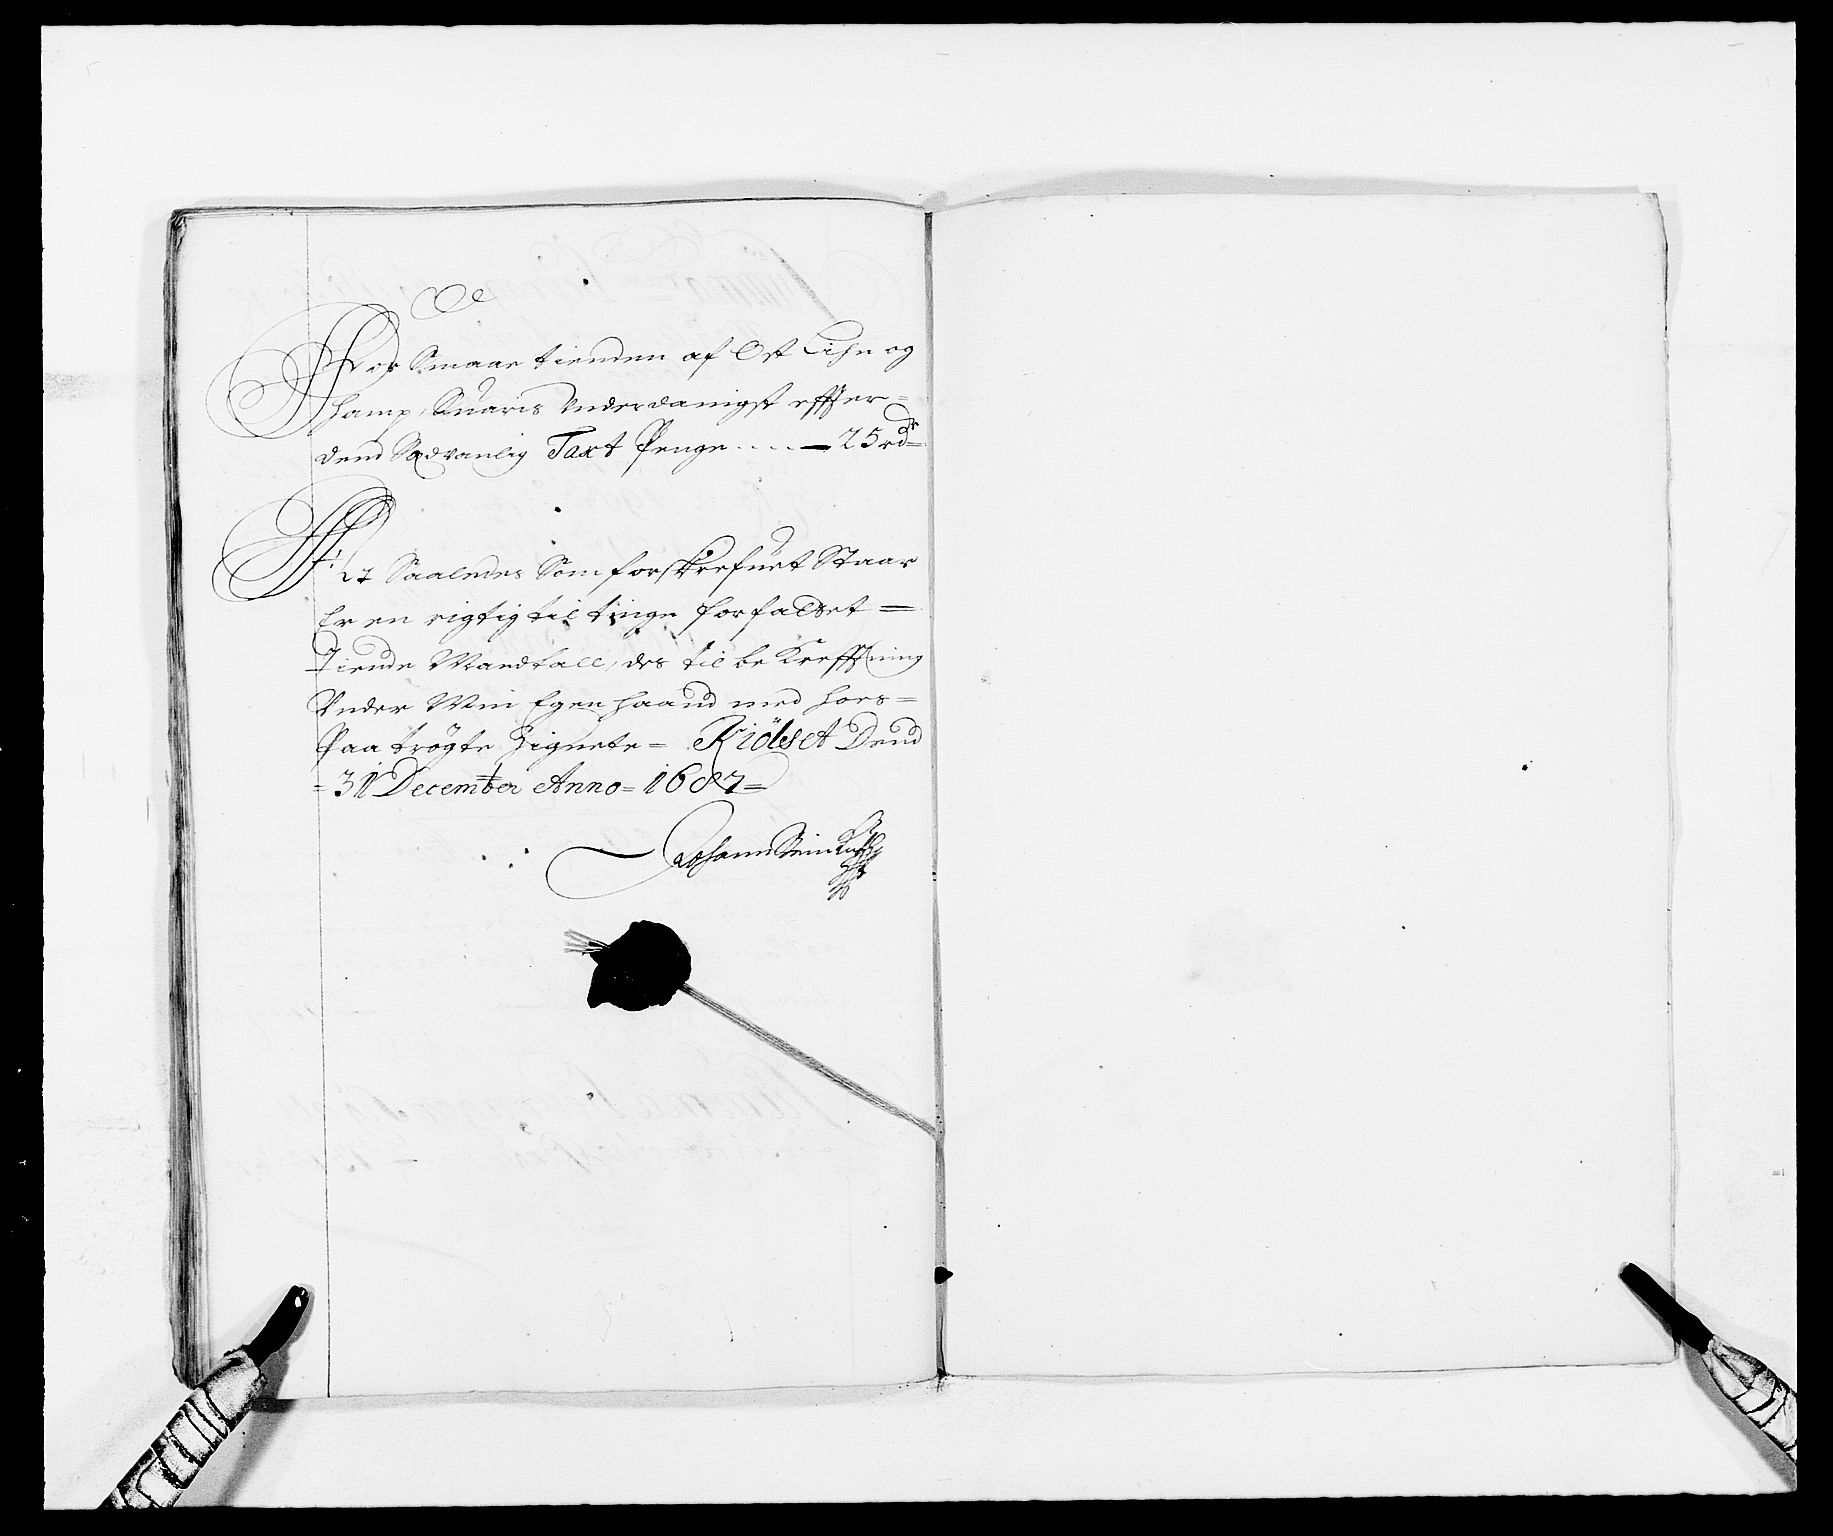 For Smaae tienden af Ost Lihn og
hamp, Suaris Underdanigst effter=
dend Sædvanlig Taxt Penge .... — 25 rdr=
At Saaledes Som forskrefuet Staar
Er en rigtig til tinge forfattet =
Tiende Mandtall, des til be Kreffttning
Under Min Egen haand med hoes=
Paa trögte Zignete = Kiölset Dend
= 31 December Anno = 1687 =
Johann